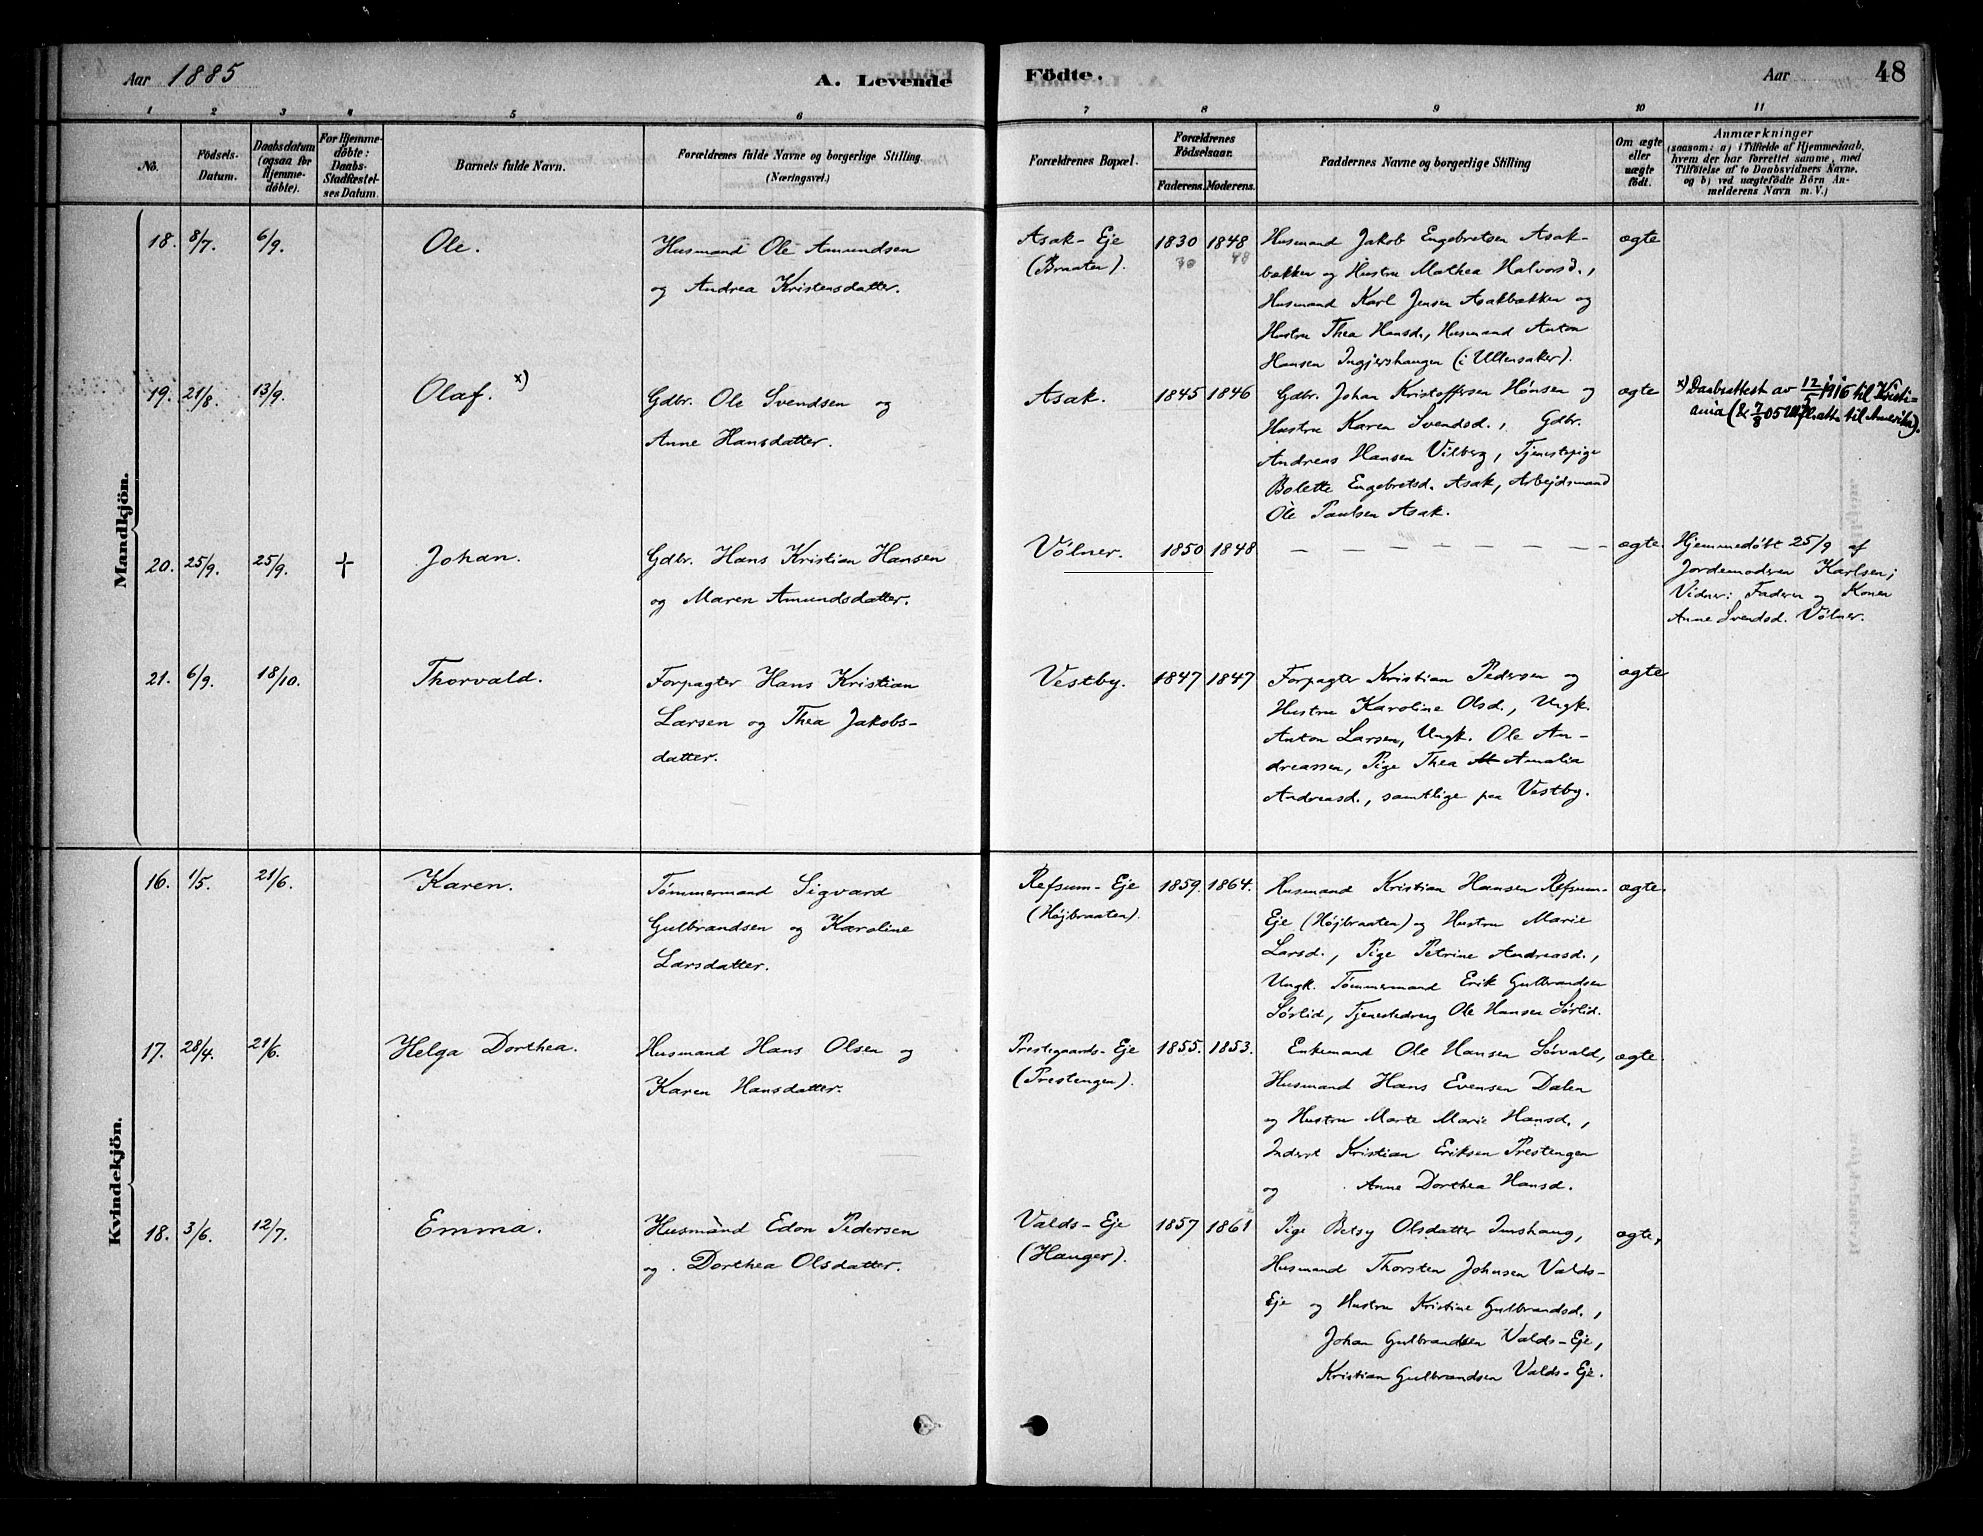 Aar 1885
A. Levende
Födte.
Aar
48
1 2 3 4 5 6 7 8 9 10 11
No.
Födsels-
Datum.
Daabsdatum
(ogsaa for
Hjemme-
döbte).
For Hjemme-
döbte:
Daabs-
Stadfæstel-
ses Datum.
Barnets fulde Navn.
Forældrenes fulde Navne og borgerlige Stilling.
(Næringsvei.)
Forældrenes Bopæl.
Forældrenes
Födselsaar.
Faderens. Moderens.
Faddernes Navne og borgerlige Stilling
Om ægte
eller
uægte
födt.
Anmærkninger
(saasom: a) i Tilfælde af Hjemmedaab,
hvem der har forrettet samme, med
Tilföielse af to Daabsvidners Navne.
og b) ved uægtefödte Börn An-
melderens Navn m. V.)
Mandkjön.
18. 8/7. 6/9. Ole.
Husmand Ole Amundsen
og Andrea Kristensdatter.
Asak-Eje
(Braaten).
1830 1848
30 48
Husmand Jakob Engebretsen Asak-
bækken og Hustru Mathea Halvorsd.,
Husmand Karl Jensen Asakbækken og
Hustru Thea Hansd., Husmand Anton
Hansen Ingjershaugen (i Ullensaker).
ægte
19. 21/8. 13/9. Olaf. x)
Gdbr. Ole Svendsen og
Anne Hansdatter.
Asak.
1845 1846
Gdbr. Johan Kristoffersen Hønsen og
Hustru Karen Svendsd., Gdbr.
Andreas Hansen Vilberg, Tjenestepige
Bolette Engebretsd. Asak, Arbejdsmand
Ole Paulsen Asak.
ægte
x) Daabsattest av 12/5 1916 til Kristi-
ania (& 7/8 05 Utflatt. til Amerika).
20. 25/9. 25/9. Johan.
Gdbr. Hans Kristian Hansen
og Maren Amundsdatter.
Vølner.
1850 1848
ægte.
Hjemmedøbt 25/9 af
Jordemoderen Karlsen;
Vidner: Faderen og Konen
Anne Svendsd. Vølner.
21. 6/9. 18/10. Thorvald.
Forpagter Hans Kristian
Larsen og Thea Jakobs-
datter.
Vestby.
1847 1847
Forpagter Kristian Pedersen og
Hustru Karoline Olsd., Ungk.
Anton Larsen, Ungk. Ole An-
dreassen, Pige Thea Amalia
Andreasd., samtlige paa Vestby.
ægte
Kvindekjön.
16. 1/5. 21/6. Karen.
Tømmermand Sigvard
Gulbrandsen og Karoline
Larsdatter.
Refsum-Eje
(Højbraaten).
1859. 1864.
Husmand Kristian Hansen Refsum-
Eje (Højbraaten) og Hustru Marie
Larsd., Pige Petrine Andreasd.,
Ungk. Tømmermand Erik Gulbrandsen
Sørlid, Tjenestedreng Ole Hansen Sørlid.
ægte.
17. 28/4. 21/6. Helga Dorthea.
Husmand Hans Olsen og
Karen Hansdatter.
Prestegaards-Eje
(Prestengen).
1855. 1853.
Enkemand Ole Hansen Sørvald,
Husmand Hans Evensen Dalen
og Hustru Marte Marie Hansd.,
Inderst Kristian Eriksen Prestengen
og Anne Dorthea Hansd.
ægte.
18. 3/6. 12/7. Emma.
Husmand Edon Pedersen
og Dorthea Olsdatter.
Valds-Eje
(Hauger).
1857 1861
Pige Betsy Olsdatter Imshaug,
Husmand Thorsten Johnsen Valds-
Eje og Hustru Kristine Gulbrandsd.,
Johan Gulbrandsen Valds-Eje,
Kristian Gulbrandsen Valds-Eje.
ægte.